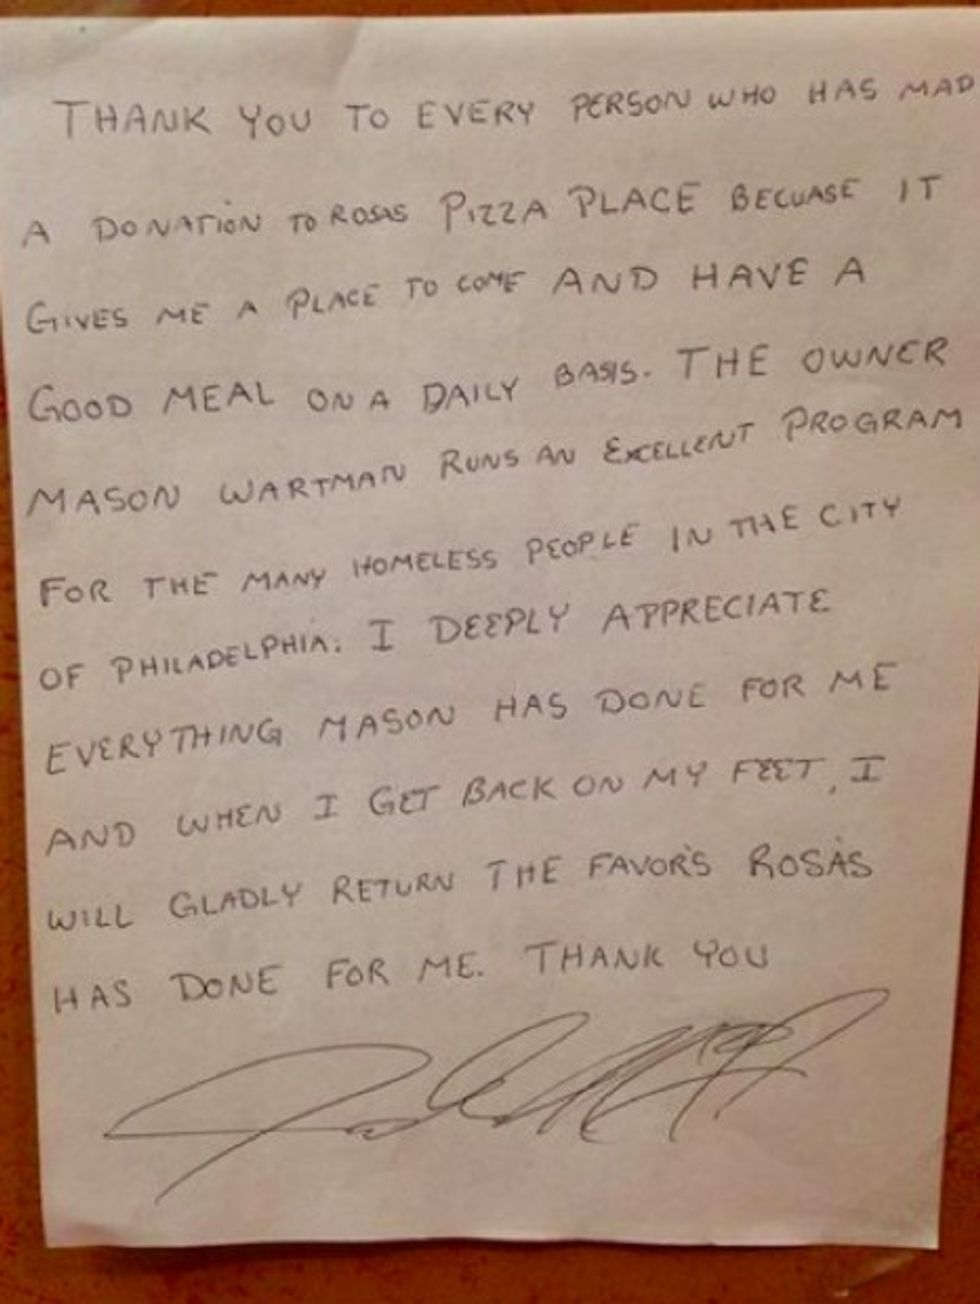 THANK YOU TO EVERY PERSON WHO HAS MAD
A DONATION TO ROSAS PIZZA PLACE BECUASE IT
GIVES ME A PLACE TO COME AND HAVE A
GOOD MEAL ON A DAILY BASIS. THE OWNER
MASON WARTMAN RUNS AN EXCELLENT PROGRAM
FOR THE MANY HOMELESS PEOPLE IN THE CITY
OF PHILADELPHIA. I DEEPLY APPRECIATE
EVERYTHING MASON HAS DONE FOR ME
AND WHEN I GET BACK ON MY FEET, I
WILL GLADLY RETURN THE FAVOR'S ROSA'S
HAS DONE FOR ME. THANK YOU